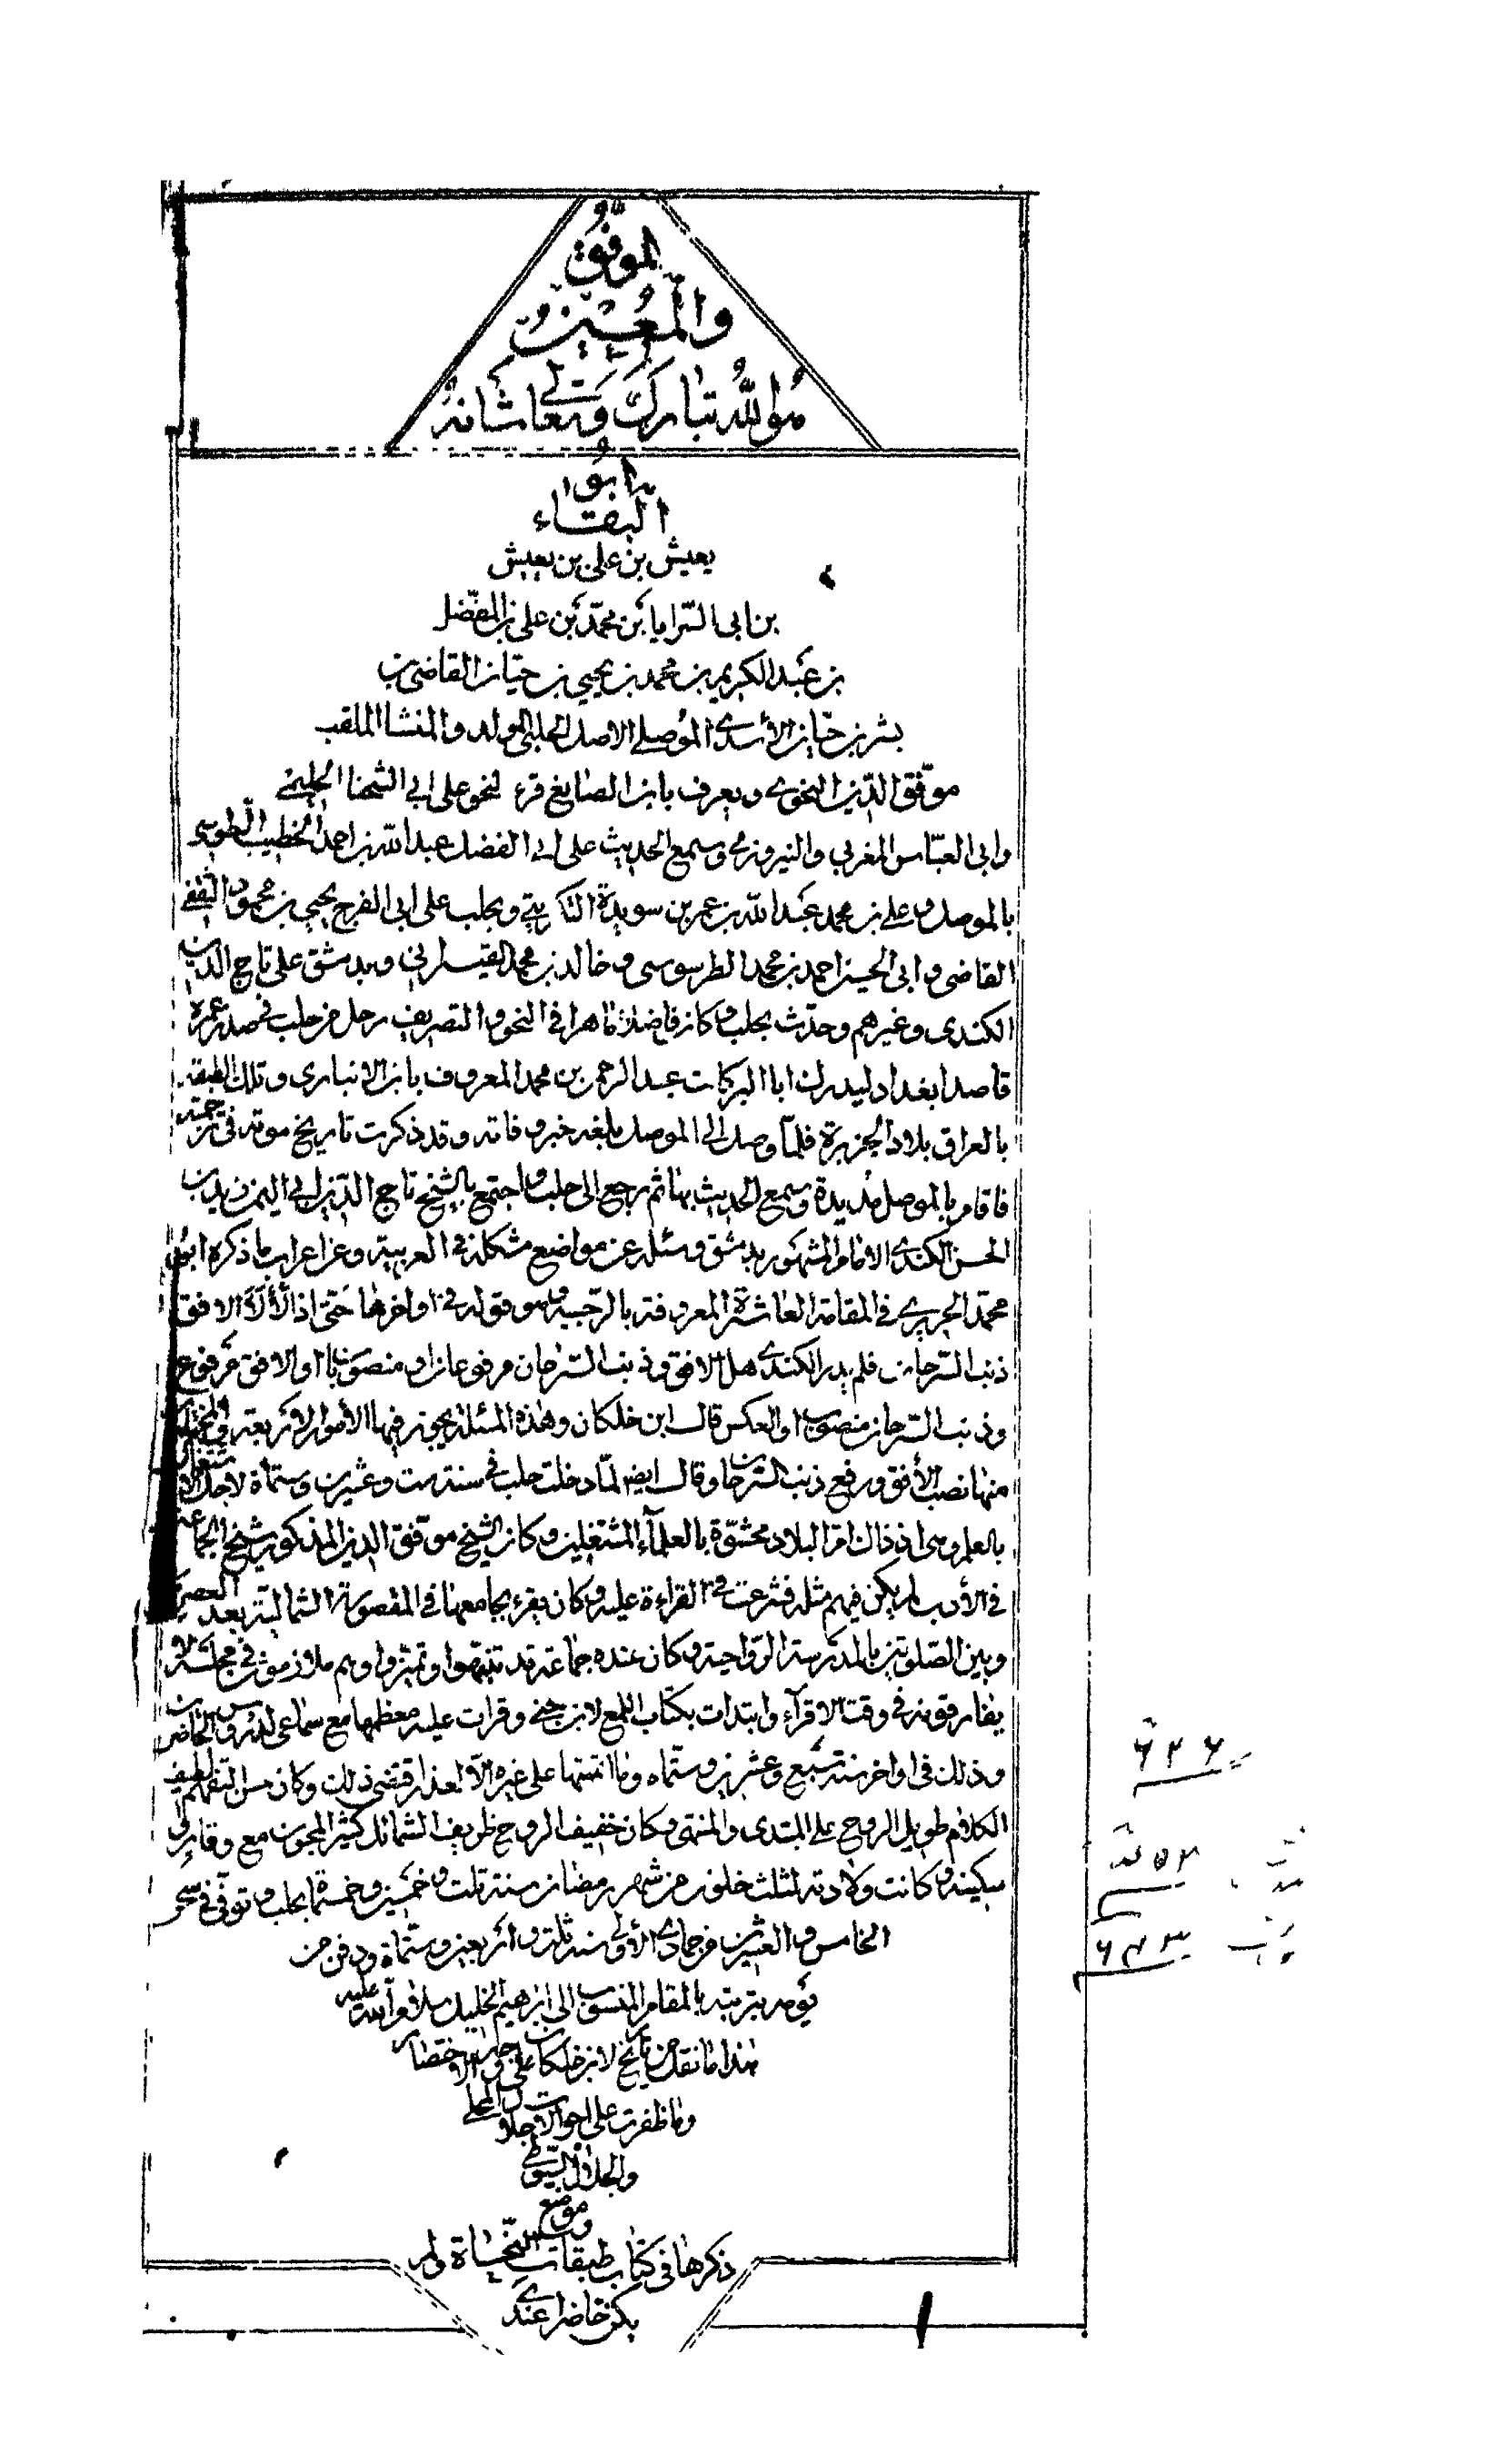 الموفق
والمعين
هو الله تبارك وتعالى شانه
ابو
البقاء
يعيش بن على بن يعيش
بن ابى السّرايا بن محمّد بن على بن المفضّل
بن عبد الكريم بن محمد بن يحيى بن حيّان القاضى بن
بشر بن حيّان الأسدى الموصلى الاصل الحلبى المولد والمنشا الملقب
موفّق الدّين النحوى ويعرف بابن الصايغ قرء النحو على ابى السخا الحلبى
وابى العبّاس المغربى والنيروزى وسمع الحديث على ابى الفضل عبد الله بن احمد الخطيب الطوسى
بالموصل وعلى بن محمد عبد الله بن عمر بن سويدة التكريتى وبحلب على ابى الفرج يحيى بن محمود الثقفى
القاضى وابى الحسن احمد بن محمد الطرسوسى وخالد بن محمد القيسرانى وبدمشق على تاج الدين
الكندى وغيرهم وحدّث بحلب وكان فاضلا ماهرا فى النحو والتصريف رحل من حلب فى صدر عمره
قاصدا بغداد ليدرك ابا البركات عبد الرحمن بن محمد المعروف بابن الانبارى وتلك الطبقة
بالعراق بلاد الجزيرة فلمّا وصل الى الموصل بلغه خبر وفاته وقد ذكرت تاريخ موته فى ترجمته
فاقام بالموصل مديدة وسمع الحديث بها ثم رجع الى حلب واجتمع بالشيخ تاج الدّين ابى اليمن زيد بن
الحسن الكندى الامام المشهور بدمشق وسئله عن مواضع مشكلة فى العربية وعن اعراب ما ذكره ابو
محمّد الحريرى فى المقامة العاشرة المعروفة بالرحبية وهو قوله فى اواخرها حتى اذا لألأ الافق
ذنب السّرحان فلم يدر الكندى هل الافق وذنب السّرحان مرفوعان او منصوبان او الافق مرفوع
وذنب السّرحان منصوب او العكس قال ابن خلكان وهذه المسئلة يجوز فيها الأمور الأربعة والمختار
منها نصب الأفق ورفع ذنب السّرحان وقال ايضا لمّا دخلت حلب فى سنة ست وعشرين وستمأة لاجل الاشتغال
بالعلم وهى اذ ذاك امّ البلاد محشوّة بالعلماء المشتغلين وكان الشيخ موفّق الدين المذكور شيخ الجماعة
فى الأدب لم يكن فيهم مثله فشرعت فى القراءة عليه وكان يقرء بجامعها فى المقصورة الشمالية بعد العصر
وبين الصّلوتين بالمدرسة الرّواحية وكان عنده جماعة قد تنبّهوا وتميّزوا وهم ملازمون مجلسه لا
يفارقونه فى وقت الاقراء وابتدات بكتاب اللمع لابن جنى وقرات عليه معظمها مع سماعى لدروس الحاضرين
وذلك فى اواخر سنة سبع وعشرين وستمأه وما اتممتها على غيره الّا لعذر اقتضى ذلك وكان حسن التفهم لطيف
الكلام طويل الروح على المبتدى والمنتهى وكان خفيف الروح ظريف الشمائل كثير المجون مع وقار
سكينة وكانت ولادته لثلث خلون من شهر رمضان سنة ثلث وخمسين وخمسمأة بحلب وتوفّى فى سحر
الخامس والعشرين من جمادى الأولى سنة ثلثة واربعين وستمأة ودفن من
يومه بتربته بالمقام المنسوب الى ابرهيم الخليل صلوات الله عليه
هذا ما نقل من تاريخ لابن خلكان على وجه الاختصار
وما ظفرت على احوال
والجلال السيوطى
موضع
ذكرها فى كتاب طبقات النّحاة ولم
يكن حاضرا عندى
۶۲۶
۵۵۳
۶۴۳